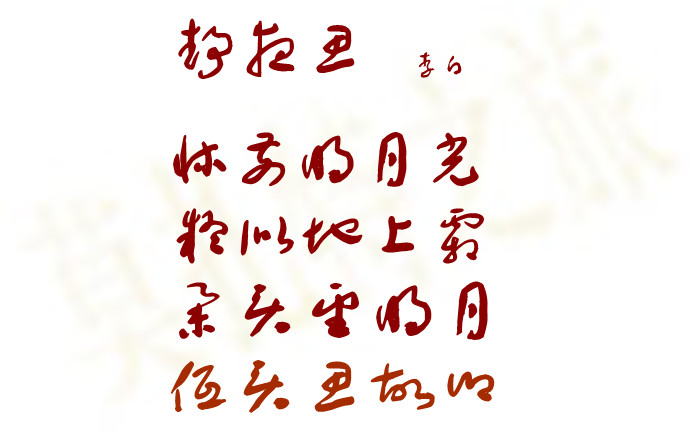 静夜思 李白
床前明月光
疑似地上霜
举头望明月
低头思故乡